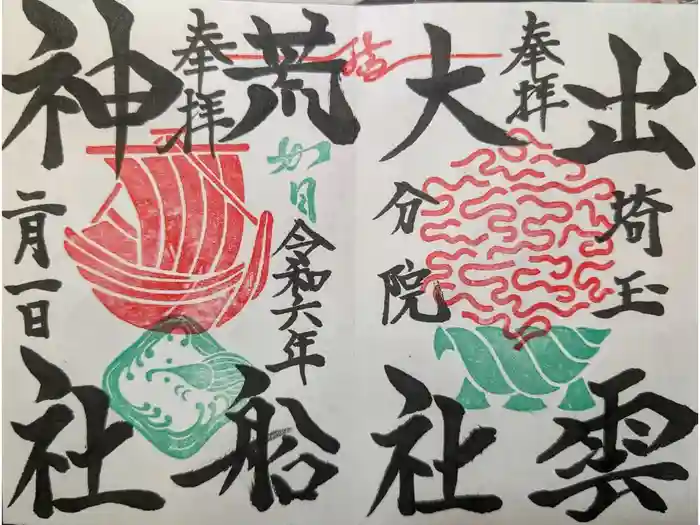 出雲
埼玉
奉拝
大社
分院
荒船
如月
令和六年
奉拝
神社
二月一日